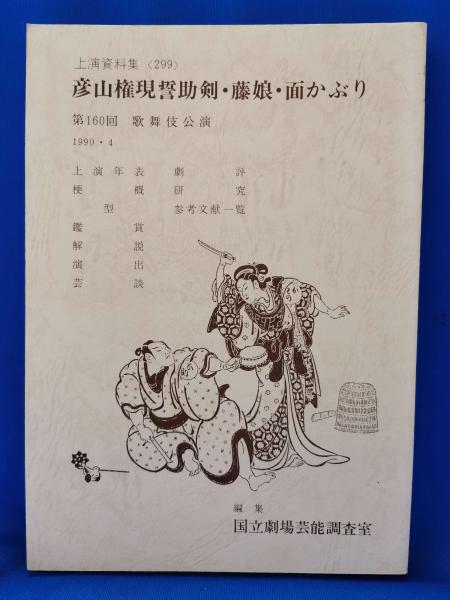 上演資料集〈299〉
彦山権現誓助剣・藤娘・面かぶり
第160回 歌舞伎公演
1990・4
上演年表 劇評
梗概 研究
型 参考文献一覧
鑑賞
解説
演出
芸談
編集
国立劇場芸能調査室